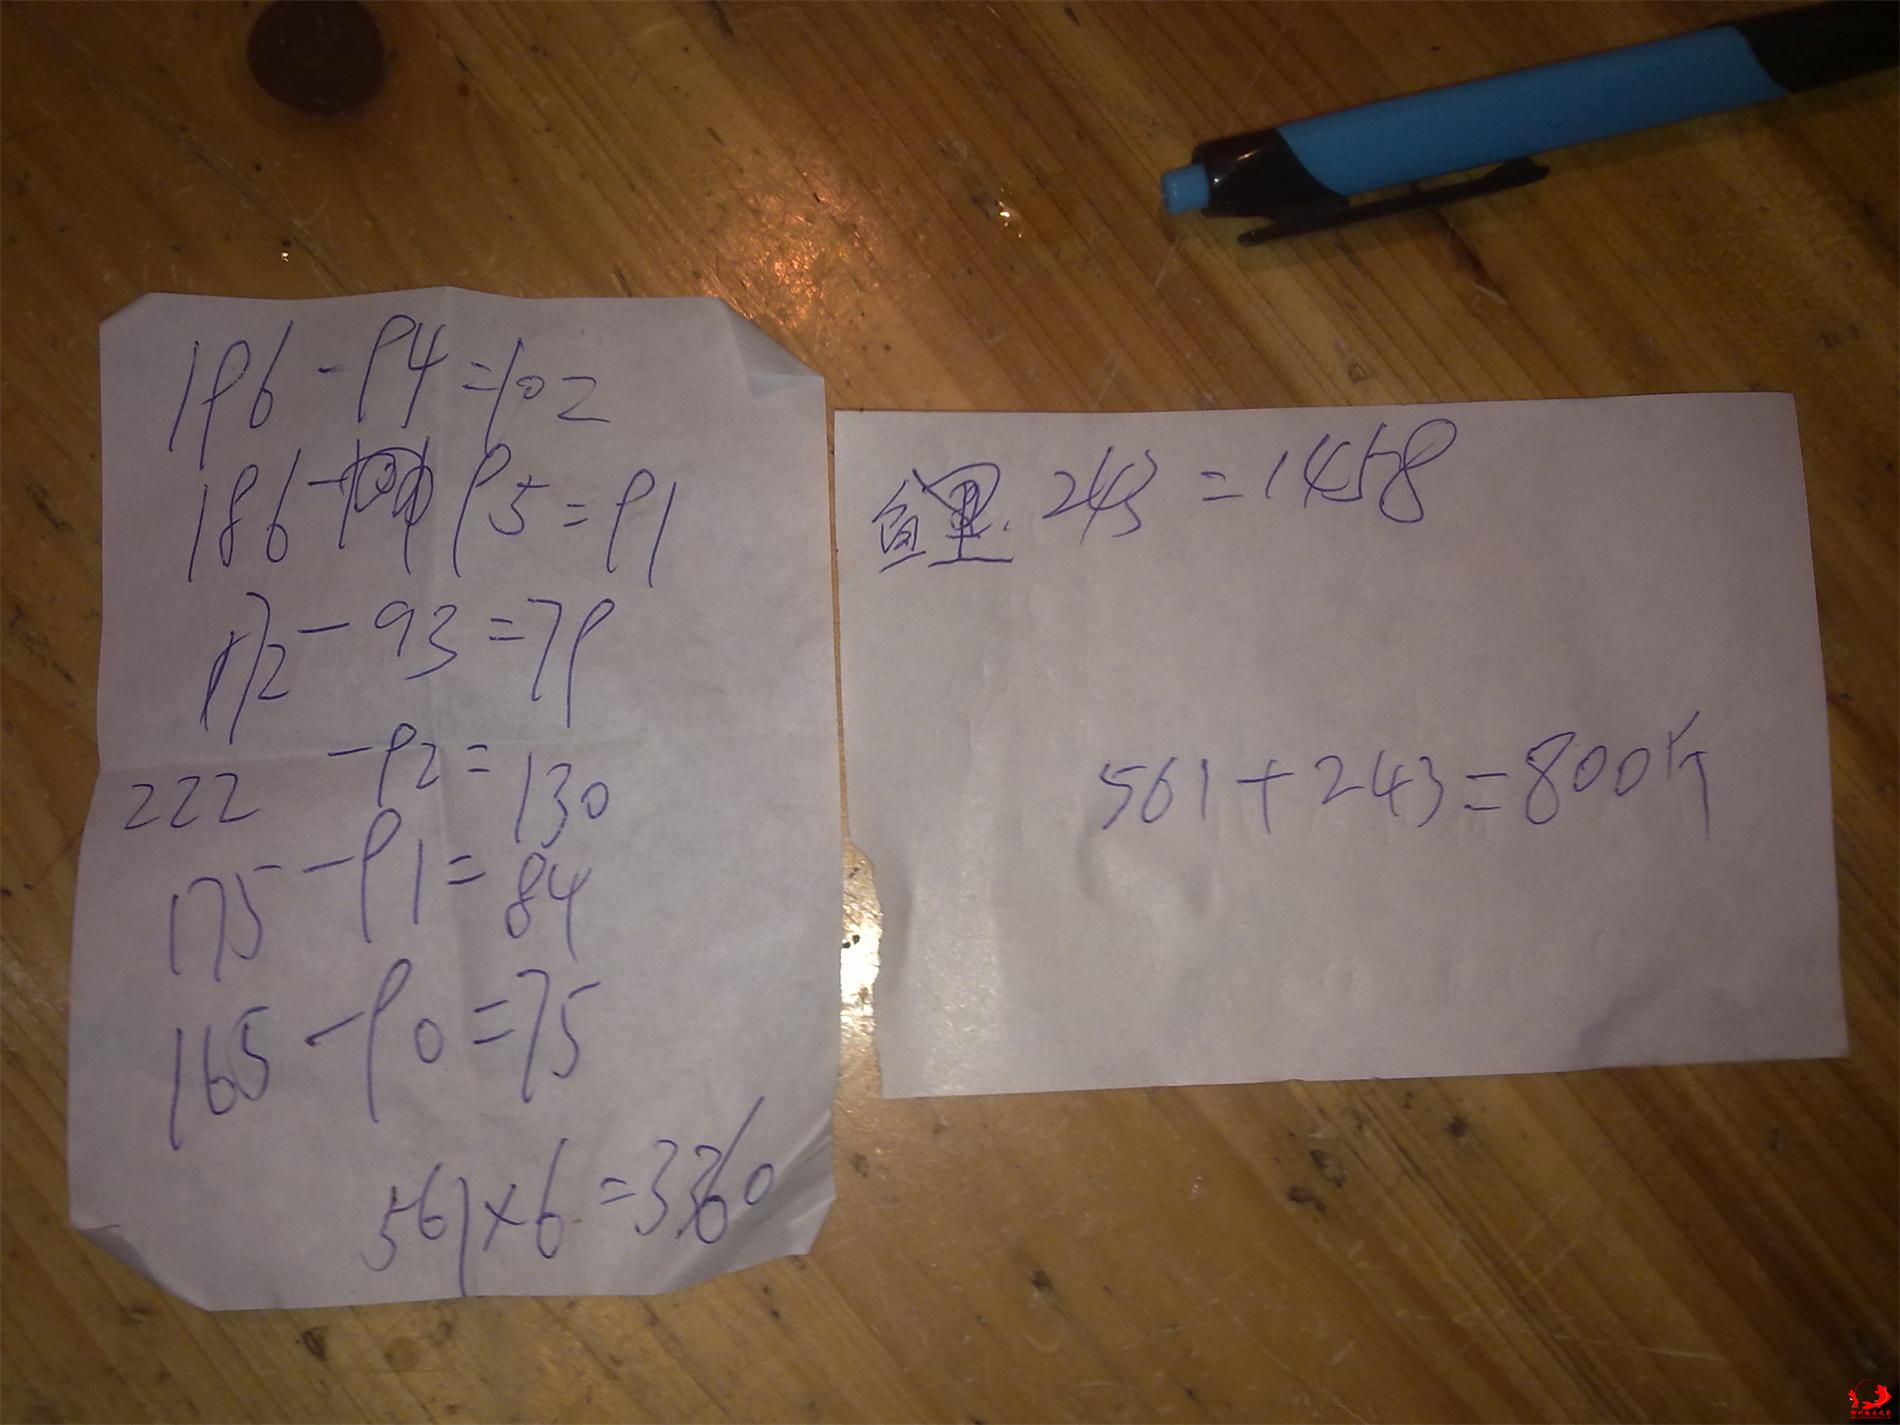 196-94=102
186-95=91
172-93=79
222-92=130
175-91=84
165-90=75
561×6=3360
鲤.243=1458
561+243=800斤